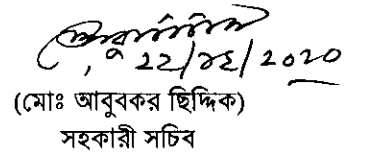 ২২/১২/২০২০
(মোঃ আবুবকর ছিদ্দিক)
সহকারী সচিব